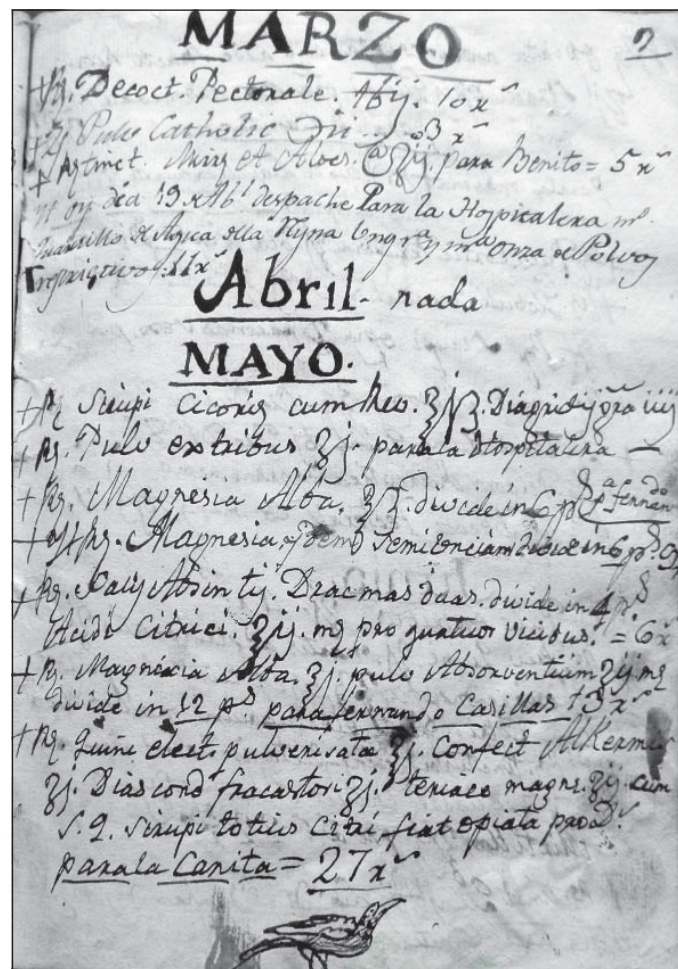 MARZO
+ Rx. Decoct. Pectorale. 10 rs
+ Pulv Catholic 3 rs
+ Mirrę et Aloes. ʒij. para Benito = 5 rs
oy dia 19 Abl despache Para la Hospitalera mo
quartillo de Agua ella Reyna Ungra y ma onza de Polvos
restrictivos 11 rs
Abril - nada
MAYO.
+ Rx Sirupi Cicorię cum Reo. Diagridij gra iiij
+ Rx. Pulv extribus ʒj. para la Hospitalera —
+ Rx. Magnesia Alba. ʒß. divide in 6 ps pa fernando
+ Rx. Magnesia. Semiunciam divide in 6 ps.
+ Rx. Salis Absintij. Dracmas duas. divide in 4 ps
Acidi Citrici. ʒij. mę pro quatuor vicibus. = 6 rs
+ Rx. Magnecia Alba. ʒj. pulv Absorventium ʒij. mę
divide in 12 ps para fernando Casillas 13 rs
+ Rx. Quine elect. pulverisatæ ʒj. Confect Alkermes
ʒj. Diascord fracastori ʒj. teriace magnę. ʒij. cum
S. q. Sirupi totius Citri fiat opiata
para la Canita = 27 rs